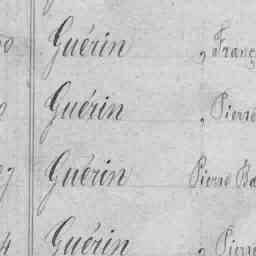 Guérin , Franç
Guérin , Pierre
Guérin Pierre Ba
Guérin , Pierre